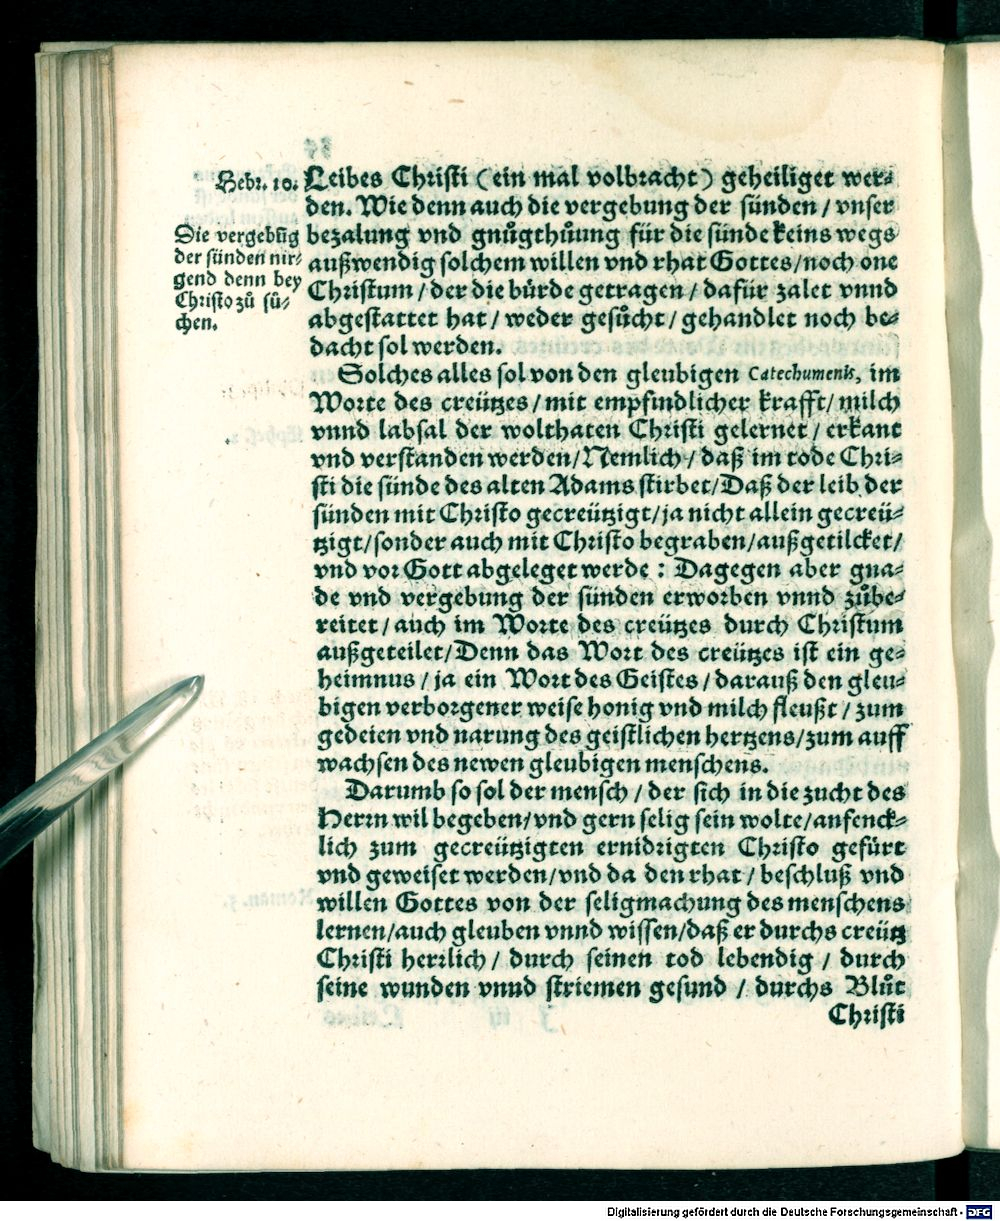 Hebr. 10.
Die vergebūg
der sünden nir⸗
gend denn bey
Christo zů sů⸗
chen.
Leibes Christi (ein mal volbracht) geheiliget wer⸗
den. Wie denn auch die vergebung der sünden / vnser
bezalung vnd gnůgthůung für die sünde keins wegs
außwendig solchem willen vnd rhat Gottes / noch one
Christum / der die bürde getragen / dafür zalet vnnd
abgestattet hat / weder gesůcht / gehandlet noch be⸗
dacht sol werden.
Solches alles sol von den gleubigen Catechumenis, im
Worte des creützes / mit empfindlicher krafft / milch
vnnd labsal der wolthaten Christi gelernet / erkant
vnd verstanden werden / Nemlich / daß im tode Chri⸗
sti die sünde des alten Adams stirbet / Daß der leib der
sünden mit Christo gecreützigt / ja nicht allein gecreü⸗
tzigt / sonder auch mit Christo begraben / außgetilcket /
vnd vor Gott abgeleget werde : Dagegen aber gna⸗
de vnd vergebung der sünden erworben vnnd zůbe⸗
reitet / auch im Worte des creützes durch Christum
außgeteilet / Denn das Wort des creützes ist ein ge⸗
heimnus / ja ein Wort des Geistes / darauß den gleu⸗
bigen verborgener weise honig vnd milch fleußt / zum
gedeien vnd narung des geistlichen hertzens / zum auff
wachsen des newen gleubigen menschens.
Darumb so sol der mensch / der sich in die zucht des
Herrn wil begeben / vnd gern selig sein wolte / anfenck⸗
lich zum gecreützigten ernidrigten Christo gefürt
vnd geweiset werden / vnd da den rhat / beschluß vnd
willen Gottes von der seligmachung des menschens
lernen / auch gleuben vnnd wissen / daß er durchs creütz
Christi herrlich / durch seinen tod lebendig / durch
seine wunden vnnd striemen gesund / durchs Blůt
Christi
Digitalisierung gefördert durch die Deutsche Forschungsgemeinschaft - DFG